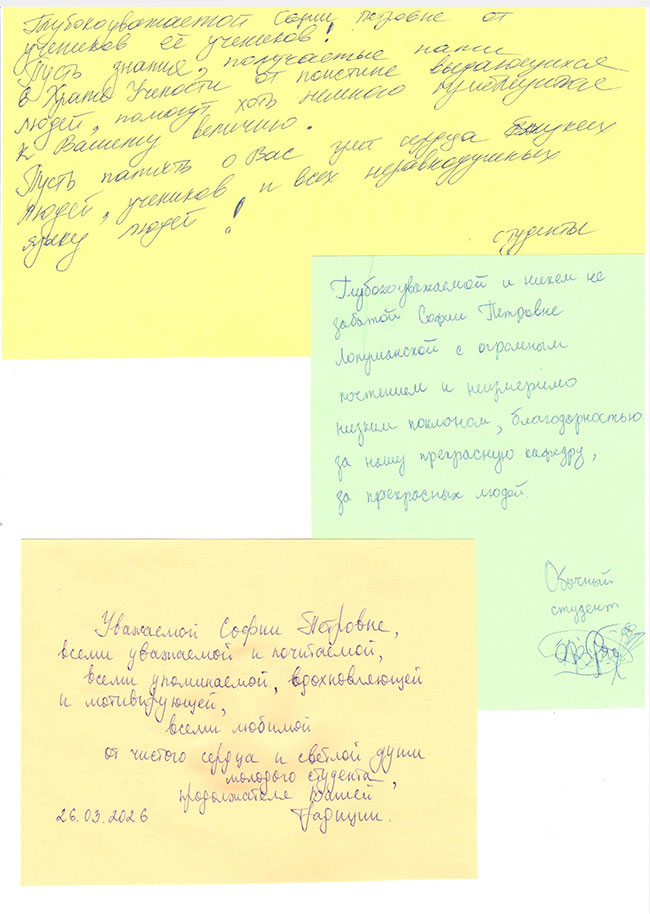 Глубокоуважаемой Софии Петровне от
учеников её учеников!
Пусть знания, получаемые нами
в Храме Учености от поистине выдающихся
людей, помогут хоть немного приблизиться
к Вашему величию.
Пусть память о Вас греет сердца близких
людей, учеников и всех неравнодушных
языку людей!
студенты
Глубокоуважаемой и никем не
забытой Софии Петровне
Лопушанской с огромным
почтением и неизмеримо
низким поклоном, благодарностью
за нашу прекрасную кафедру,
за прекрасных людей.
Обычный
студент
Уважаемой Софии Петровне,
всеми уважаемой и почитаемой,
всеми упоминаемой, вдохновляющей
и мотивирующей,
всеми любимой
от чистого сердца и светлой души
молодого студента,
продолжателя Вашей
Традиции.
26.03.2026